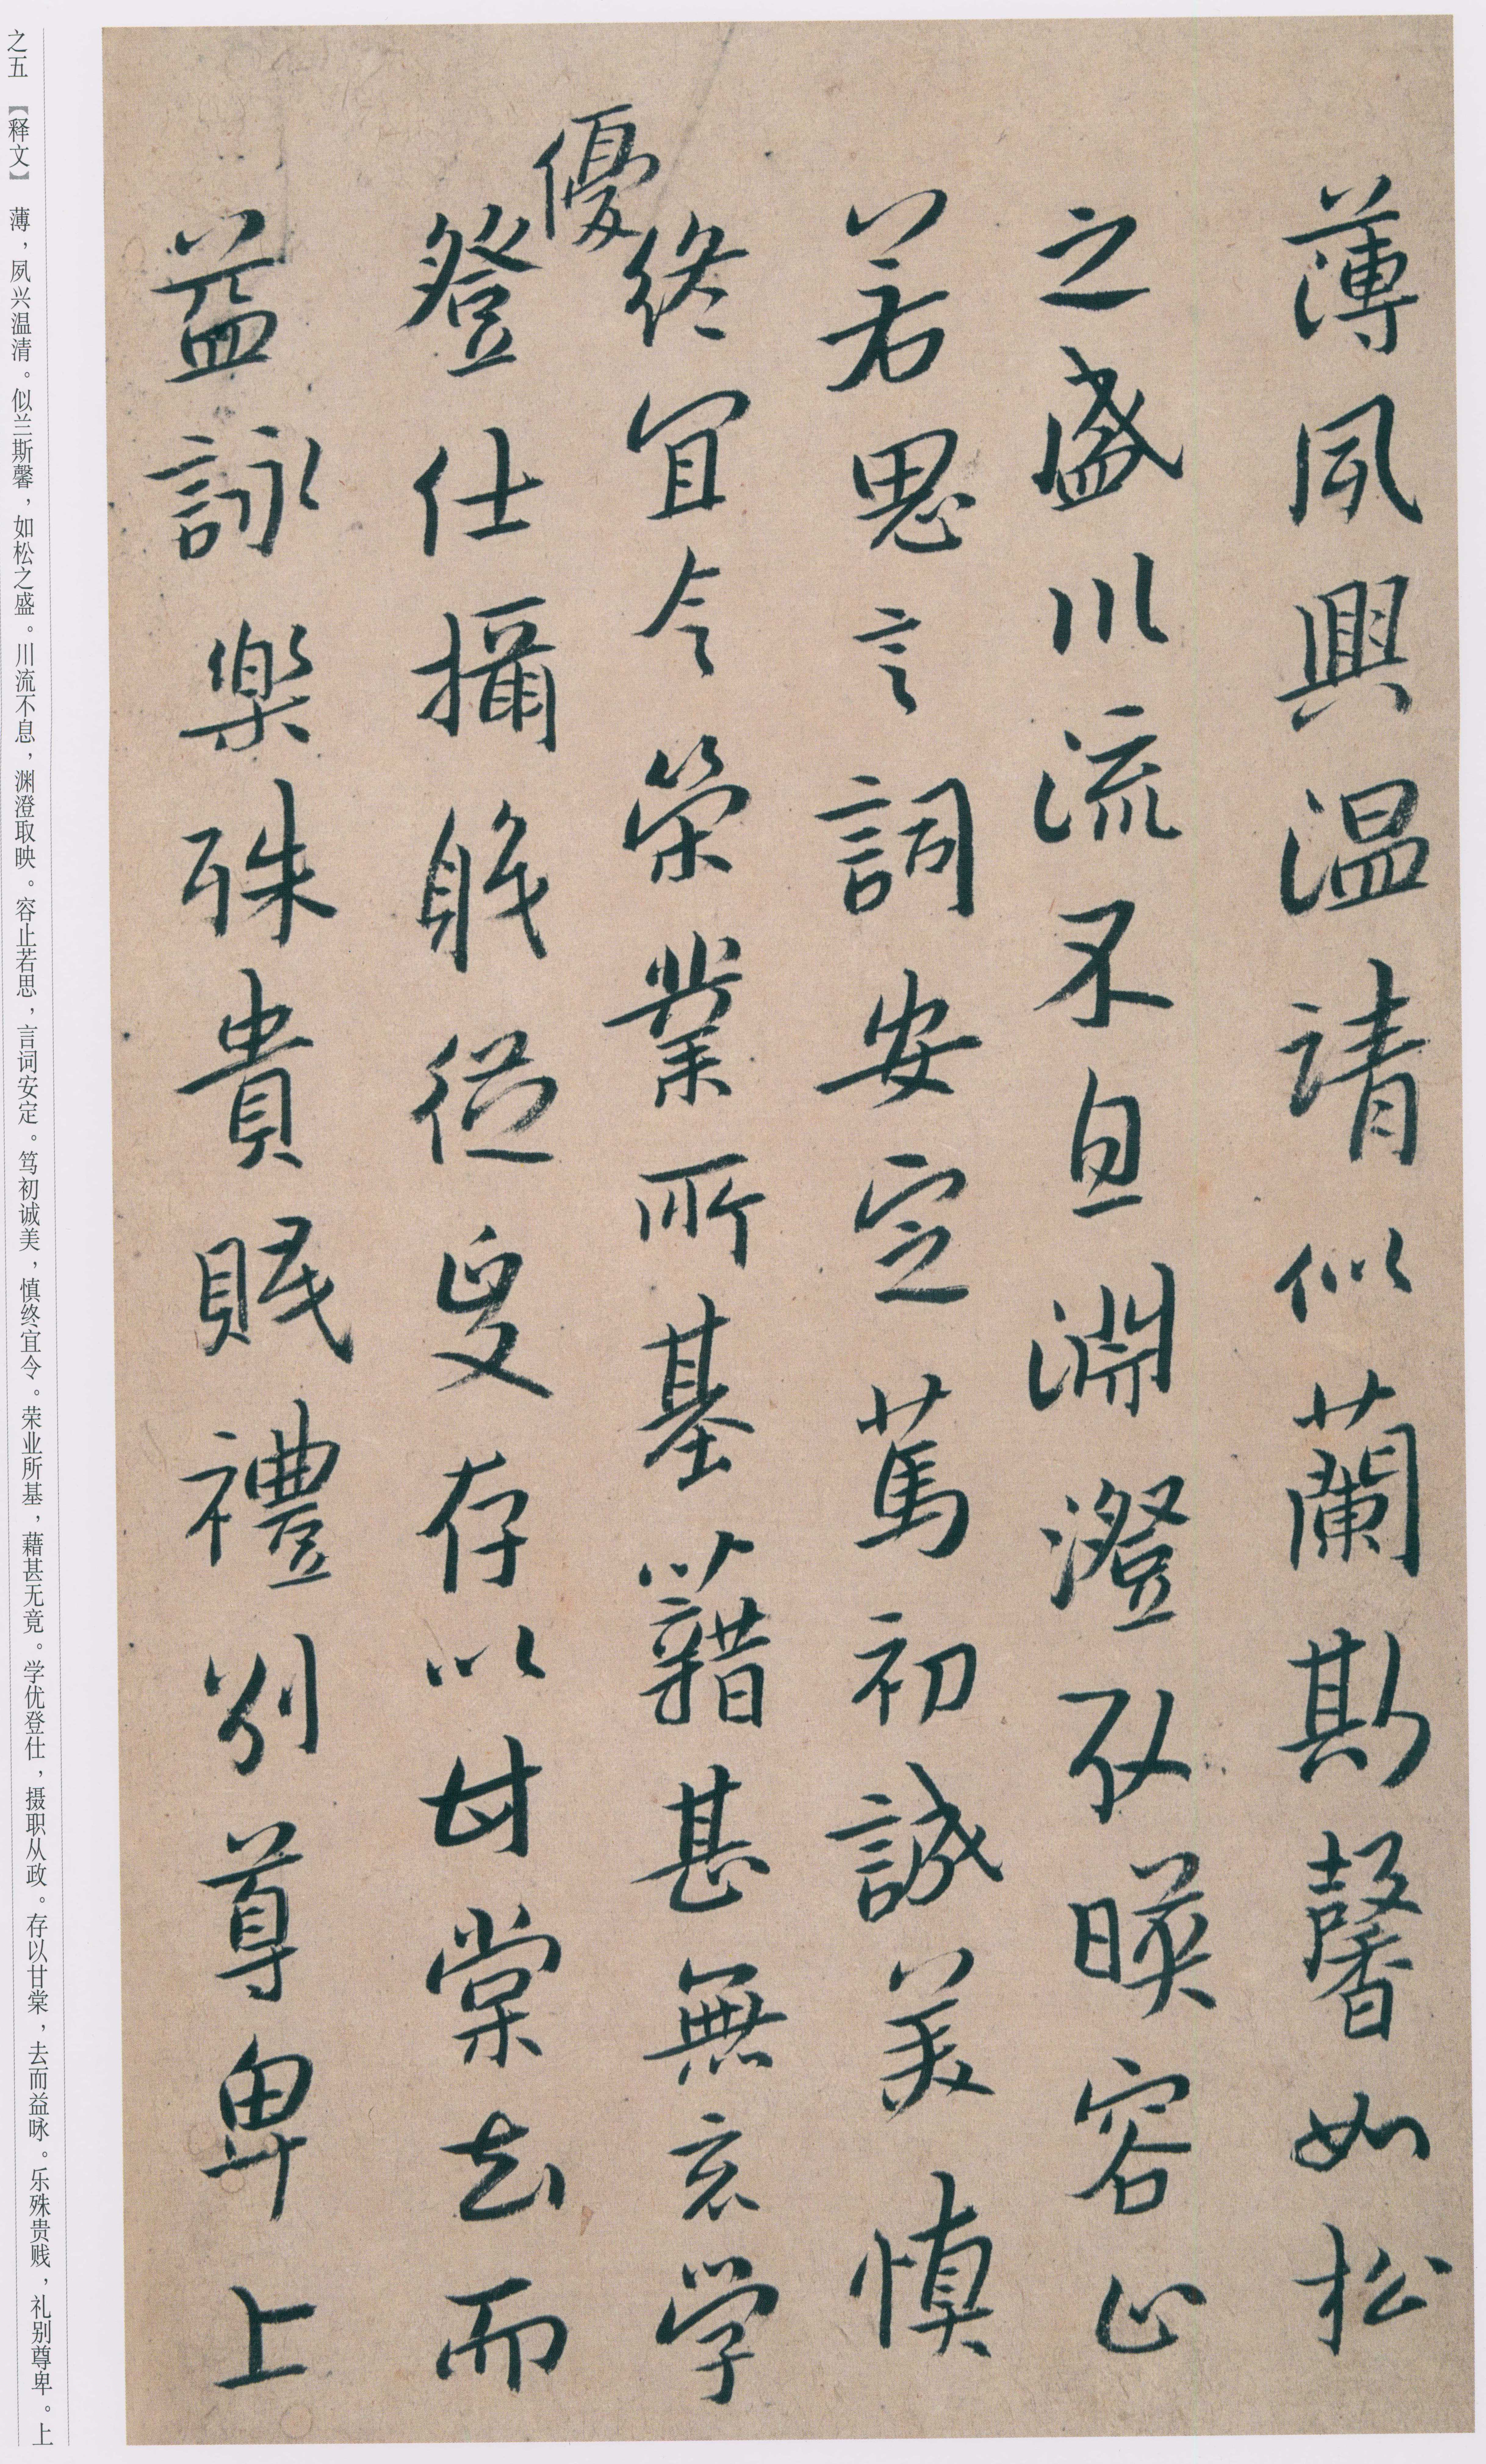 薄夙興温請似蘭斯馨如松
之盛川流不息淵澄取暎容止
若思言詞安定篤初誠美慎
終宜令榮業所基藉甚無竟学
優
登仕攝職從政存以甘棠去而
益詠樂殊貴賤禮別尊卑上
之五 【释文】 薄，夙兴温清。似兰斯馨，如松之盛。川流不息，渊澄取映。容止若思，言词安定。笃初诚美，慎终宜令。荣业所基，藉甚无竟。学优登仕，摄职从政。存以甘棠，去而益咏。乐殊贵贱，礼别尊卑。上